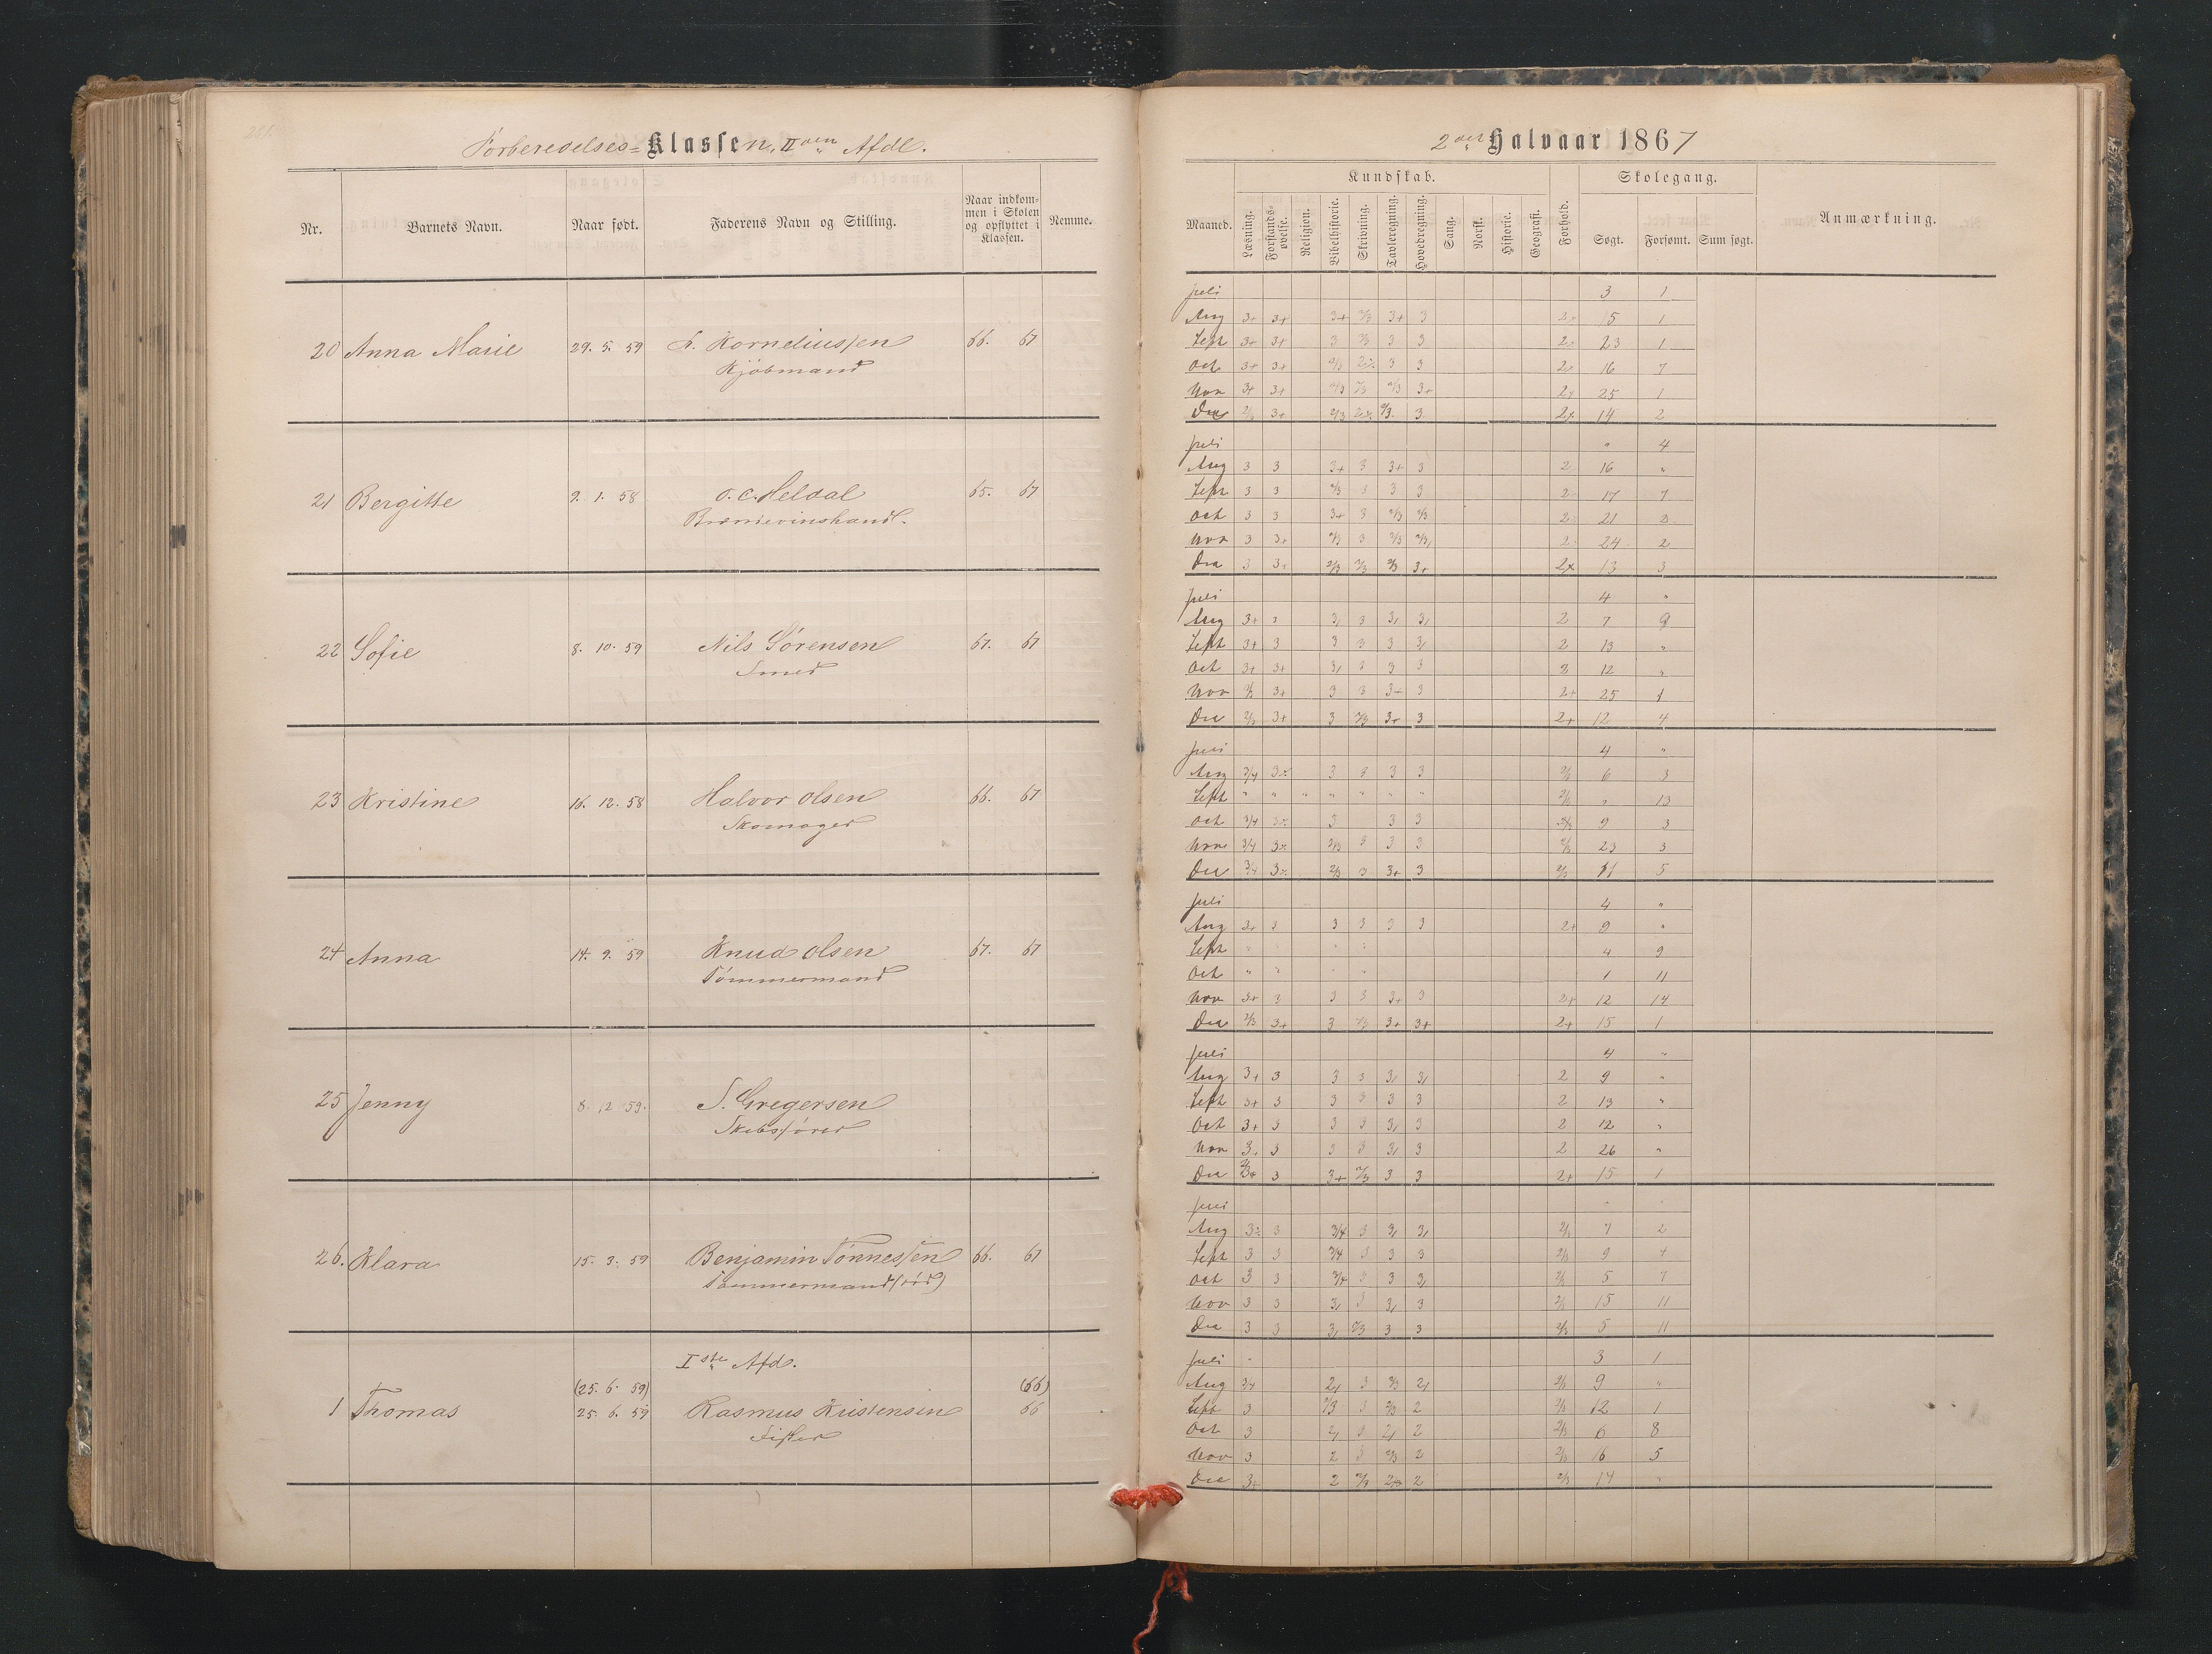 Forberedelses=Klassen, II den Afdl.
Nr. Barnets Navn. Naar født. Faderens Navn og Stilling. Naar indkommen i Skolen og opflyttet i Klassen. Nemme.
20 Anna Marie 29. 5. 59 Korneliussen 66. 67
Kjøbmand
21 Bergitte 9. 1. 58 O. C. Heldal 65. 67
Brændevinshandl.
22 Sofie 8. 10. 59 Nils Sørensen 67. 67
Smed
23 Kristine 16. 12. 58 Halvor Olsen 66. 67
Skomager
24 Anna 14. 9. 59 Knud Olsen 67. 67
Tømmermand
25 Jenny 8. 12. 59. S. Gregersen
Skibsfører
26. Klara 15. 3. 59 Benjamin Tønnessen 66. 67
Tømmermand (død)
I ste Afd.
(25. 6. 59) (66)
1 Thomas 25. 6. 59 Rasmus Kristensen 66
Fisker
2 det Halvaar 1867
Kundskab. Skolegang.
Maaned. Læsning. Forstandsøvelse. Religion. Bibelhistorie. Skrivning. Tavleregning. Hovedregning. Sang. Norsk. Historie. Geografi. Forhold. Søgt. Forsømt. Sum søgt. Anmærkning.
Juli 3 1
Aug 3+ 3+ 3+ 2/3 3+ 3 15 1
Sept 3+ 3+ 3 2/3 3 3 23 1
Oct 3+ 3+ 2/3 3 3 16 7
Nov 3+ 3+ 2/3 2/3 2/3 3+ 25 1
Dec 2/3 3+ 2/3 2/3 3 14 2
Juli " 4
Aug 3 3 3+ 3 3+ 3 2 16 "
Sept 3 3 2/3 3 3 3 2 17 7
Oct 3 3 3+ 3 2/3 2/3 2 21 2
Nov 3 3+ 2/3 3 2/3 2/3 2 24 2
Dec 3 3+ 2/3 2/3 2/3 3+ 2+ 13 3
Juli 4 "
Aug 3+ 3 3, 3 3, 3, 2 7 9
Sept 3+ 3 3 3 3 3, 2 13 "
Oct 3+ 3+ 3, 3 3 3 12 "
Nov 3+ 3 3 3 2+ 25 1
Dec 2/3 3+ 3 2/3 3+ 3 2+ 12 4
Juli 4 "
Aug 3/4 3 3 3 3 2/3 6 3
Sept " " " " " " " 2/3 " 13
Oct 3/4 3 3 3 9 3
Nov 3/4 2/3 3 3 3 2/3 23 3
Dec 3/4 2/3 3 3+ 3 2/3 11 5
Juli 4 "
Aug 3+ 3 3 3 3 3 2+ 9 "
Sept 4 9
Oct " " 1 11
Nov 3+ 3 3 3 3+ 3 2+ 12 14
Dec 2/3 3+ 3 2/3 3+ 3+ 2+ 15 1
Juli 4 "
Aug 3+ 3 3 3 3, 3, 2 9 "
Sept 3+ 3 3 3 3 3 2 13 "
Oct 3+ 3 3 3 3, 3 2 12 "
Nov 3+ 3 3 3 3, 3 2 26 "
Dec 3 3+ 2/3 3 3 2+ 15 1
Juli " "
Aug 3 3/4 3 3, 3, 2/3 7 2
Sept 3 3 3/4 3 3 3 2/3 9 4
Oct 3 3 3/4 3 3 3, 2/3 5 7
Nov 3 3 3, 3 3, 3 2/3 15 11
Dec 3 3 3, 2/3 3 3 2/3 5 11
Juli 3 1
Aug 3/4 2, 3 2/3 2, 2/3 9 "
Sept 3 2/3 3 2/3 2 2/3 12 1
Oct 3 2, 3 2, 2 2/3 6 8
Nov 3 2 3 2/3 2 2/3 16 5
Dec 3+ 2 2/3 2 2/3 14 "